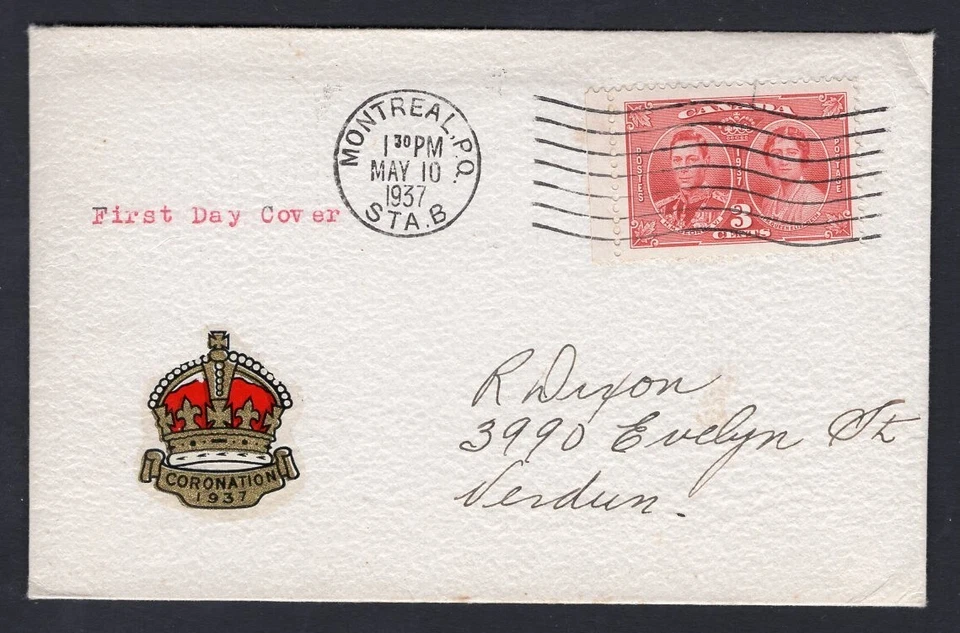 MONTREAL, P.Q.
1 30 PM
MAY 10
1937
STA. B
CANADA
POSTES
1937
POSTAGE
3
CENTS
First Day Cover
R Dixon
3990 Evelyn St
Verdun.
CORONATION
1937